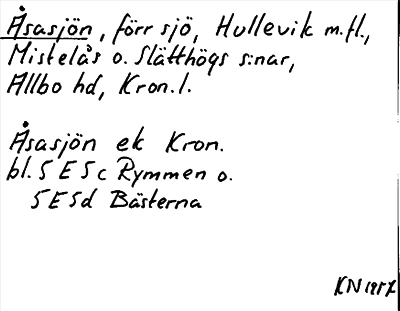 Åsasjön, förr sjö, Hullevik m.fl.,
Mistelås o. Slätthögs s:nar,
Allbo hd, Kron.l.
Åsasjön ek Kron.
bl. 5 E 5c Rymmen o.
5E5d Bästerna
KN 1957